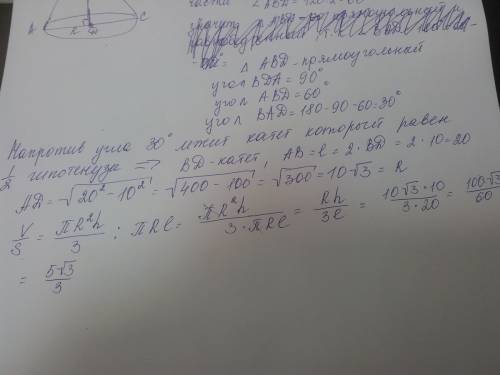 части ∠ABD = 120:2 = 60°
A K C
△ ABD - прямоугольный
угол BDA = 90°
угол ABD = 60°
угол BAD = 180-90-60 = 30°
Напротив угла 30° лежит катет который равен
1/2 гипотенузы ⇒ BD - катет, AB = l = 2·BD = 2·10 = 20
AD = √(20² - 10²) = √(400 - 100) = √300 = 10√3 = R
V/S = πR²h/3 : πRl = πR²h/(3·πRl) = Rh/3l = 10√3·10/(3·20) = 100√3/60
= 5√3/3